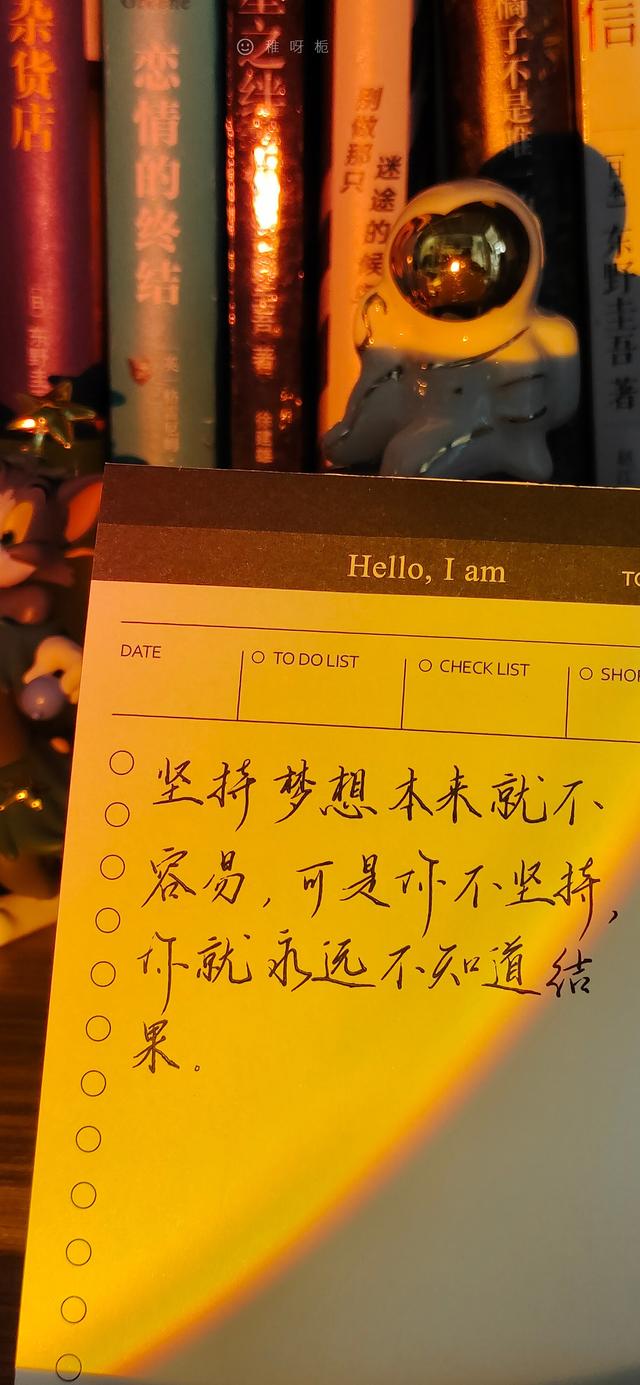 杂货店
东野圭
Greene
恋情的终结
之绊
著
别做那只
迷途的候
橘子不是唯一
信
东野圭吾 著
稚呀栀
Hello, I am
DATE
TO DO LIST
CHECK LIST
坚持梦想本来就不
容易,可是你不坚持,
你就永远不知道结
果。